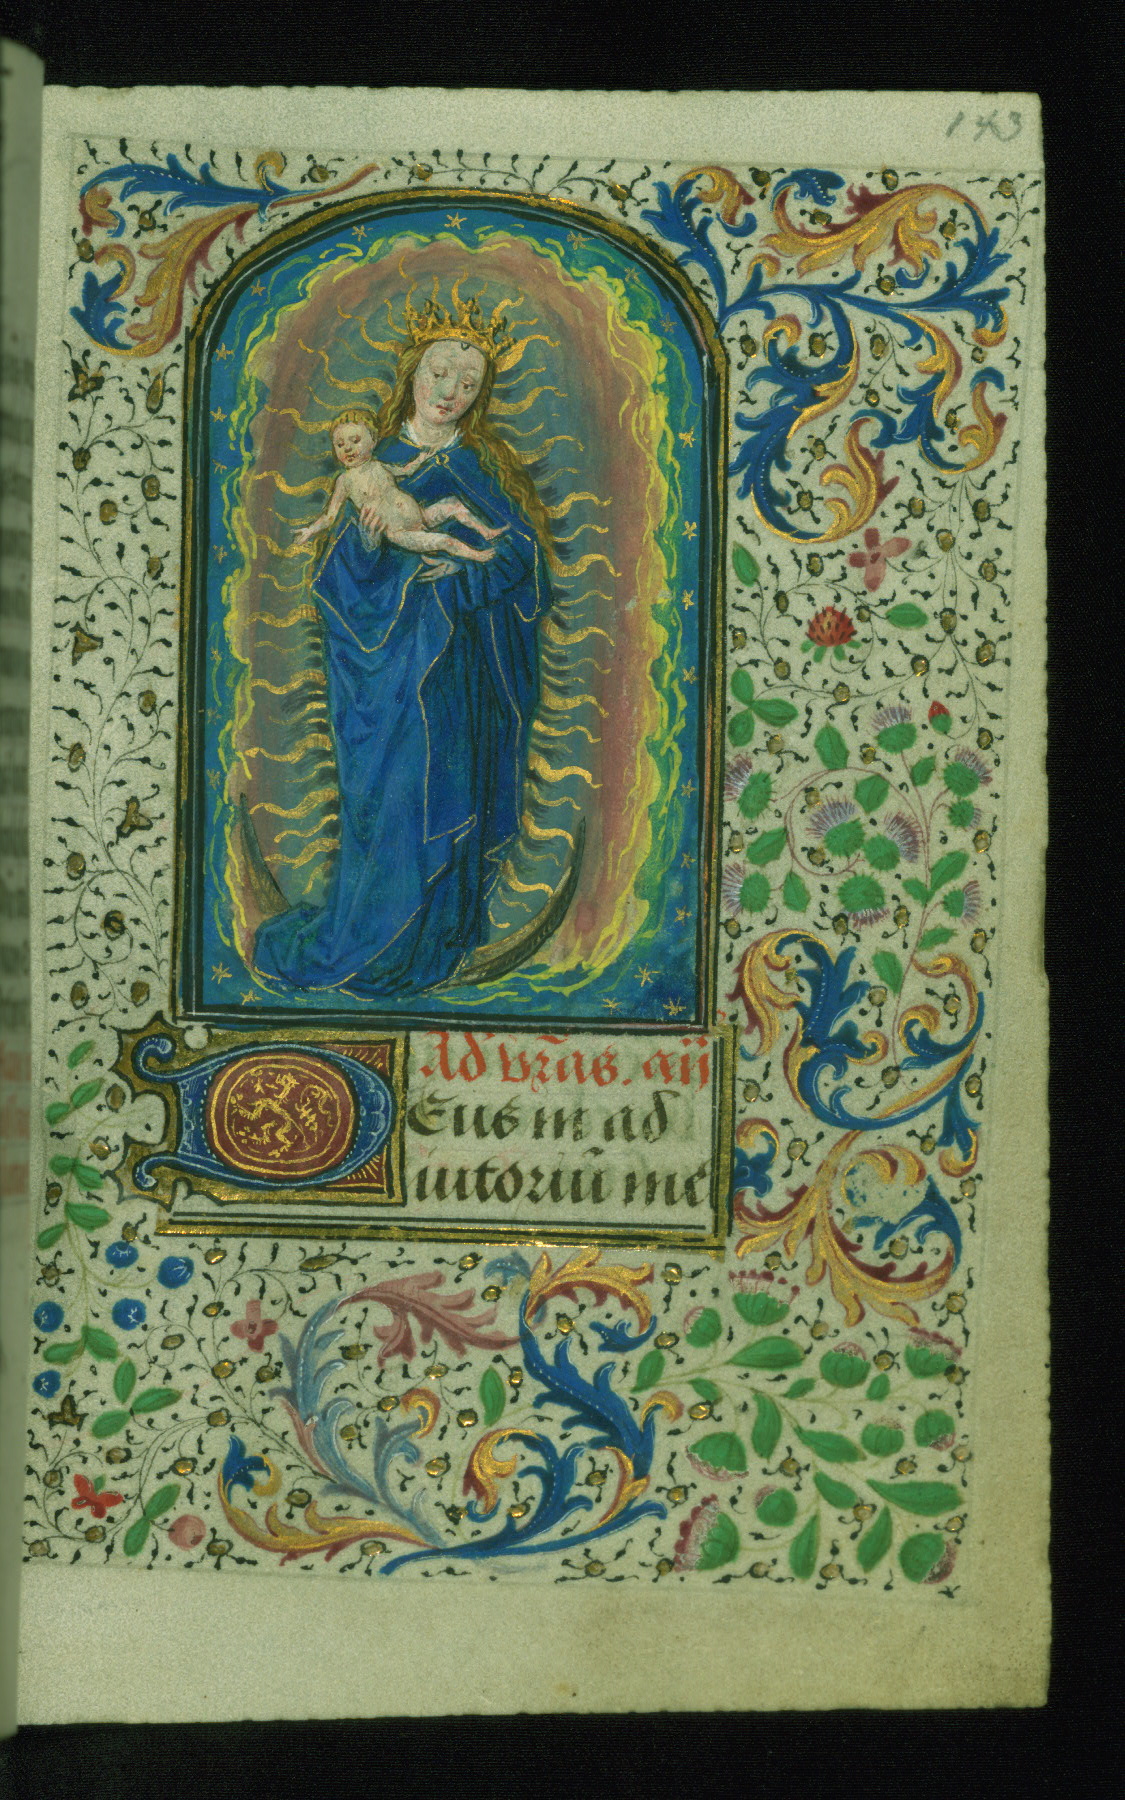 143
Ad vr̃as. añ
Deus in ad
iutoriũ me